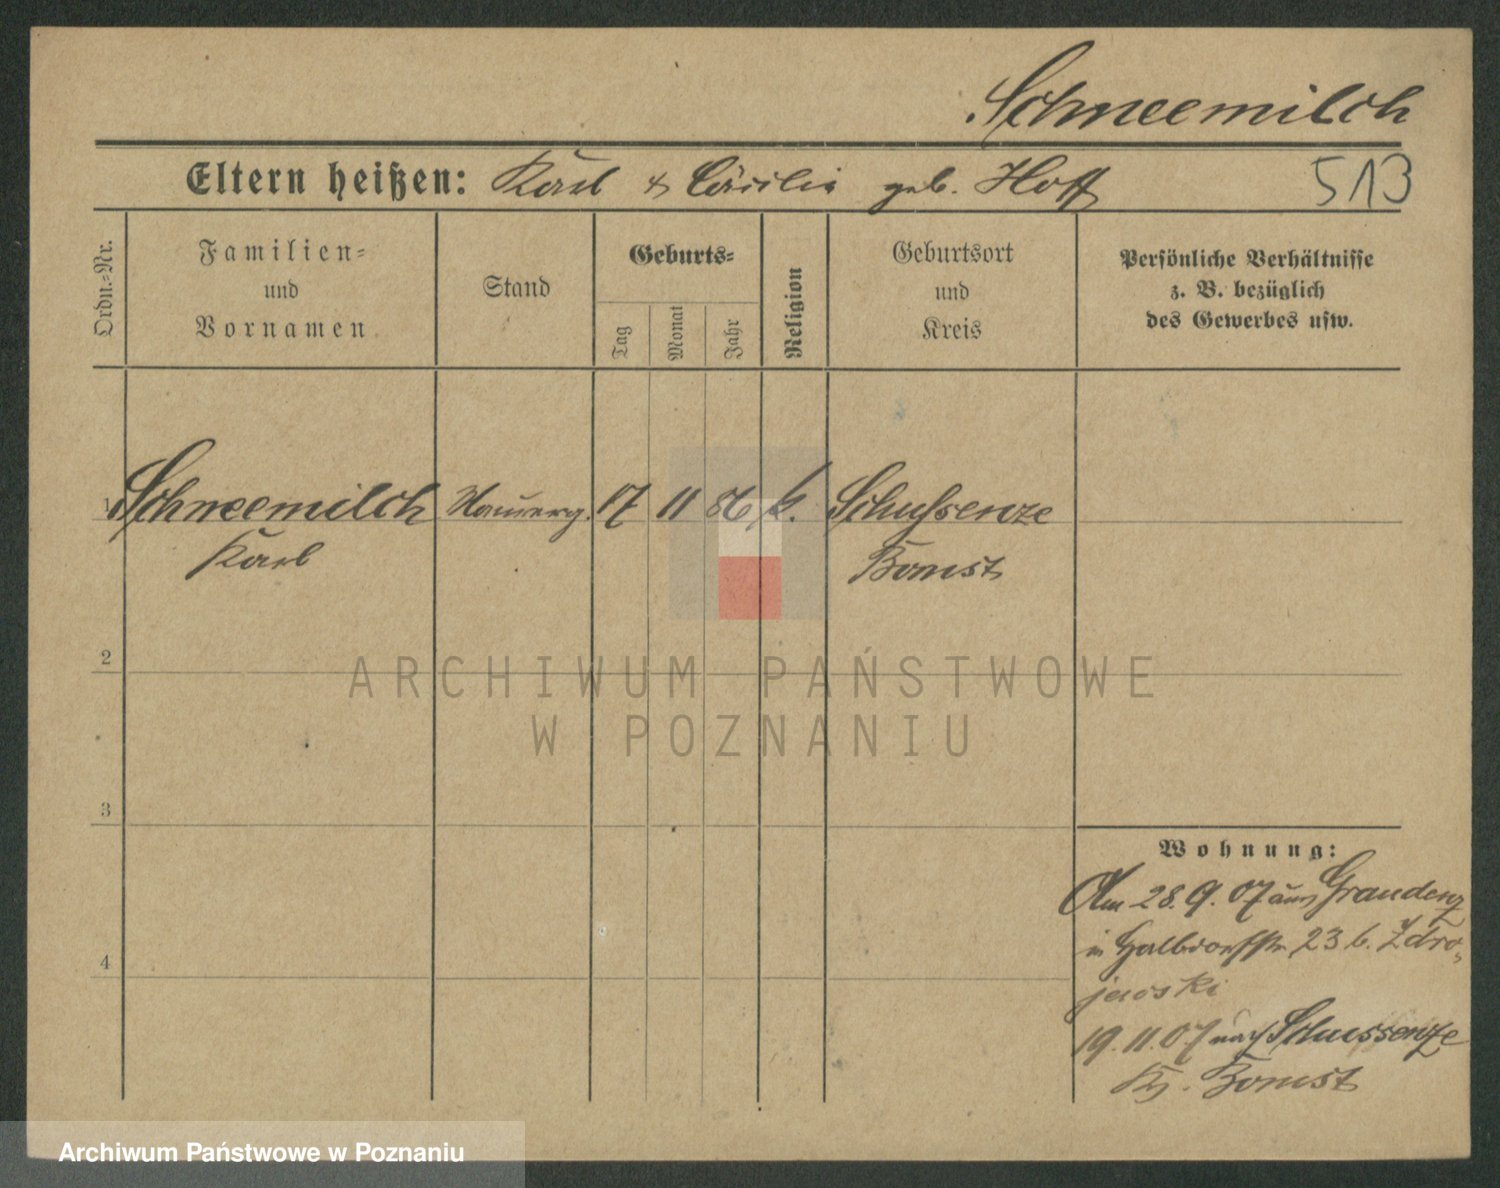 Schneemilch
Eltern heißen: Karl & Cäcilia geb. Hoff 513
Ordn.=Nr.
Familien=
und
Vornamen
Stand
Geburts=
Tag
Monat
Jahr
Religion
Geburtsort
und
Kreis
Persönliche Verhältnisse
z. B. bezüglich
des Gewerbes usw.
1 Schneemilch Maurerg. 17 11 86 k. Schussenze
Karl Bomst
2
ARCHIWUM PAŃSTWOWE
W POZNANIU
3
Wohnung:
Am 28.9.07 aus Graudenz
in Halbdorfstr 23 b. Zdro-
jewski
19.11.07 nach Schussenze
Krs. Bomst
4
Archiwum Państwowe w Poznaniu